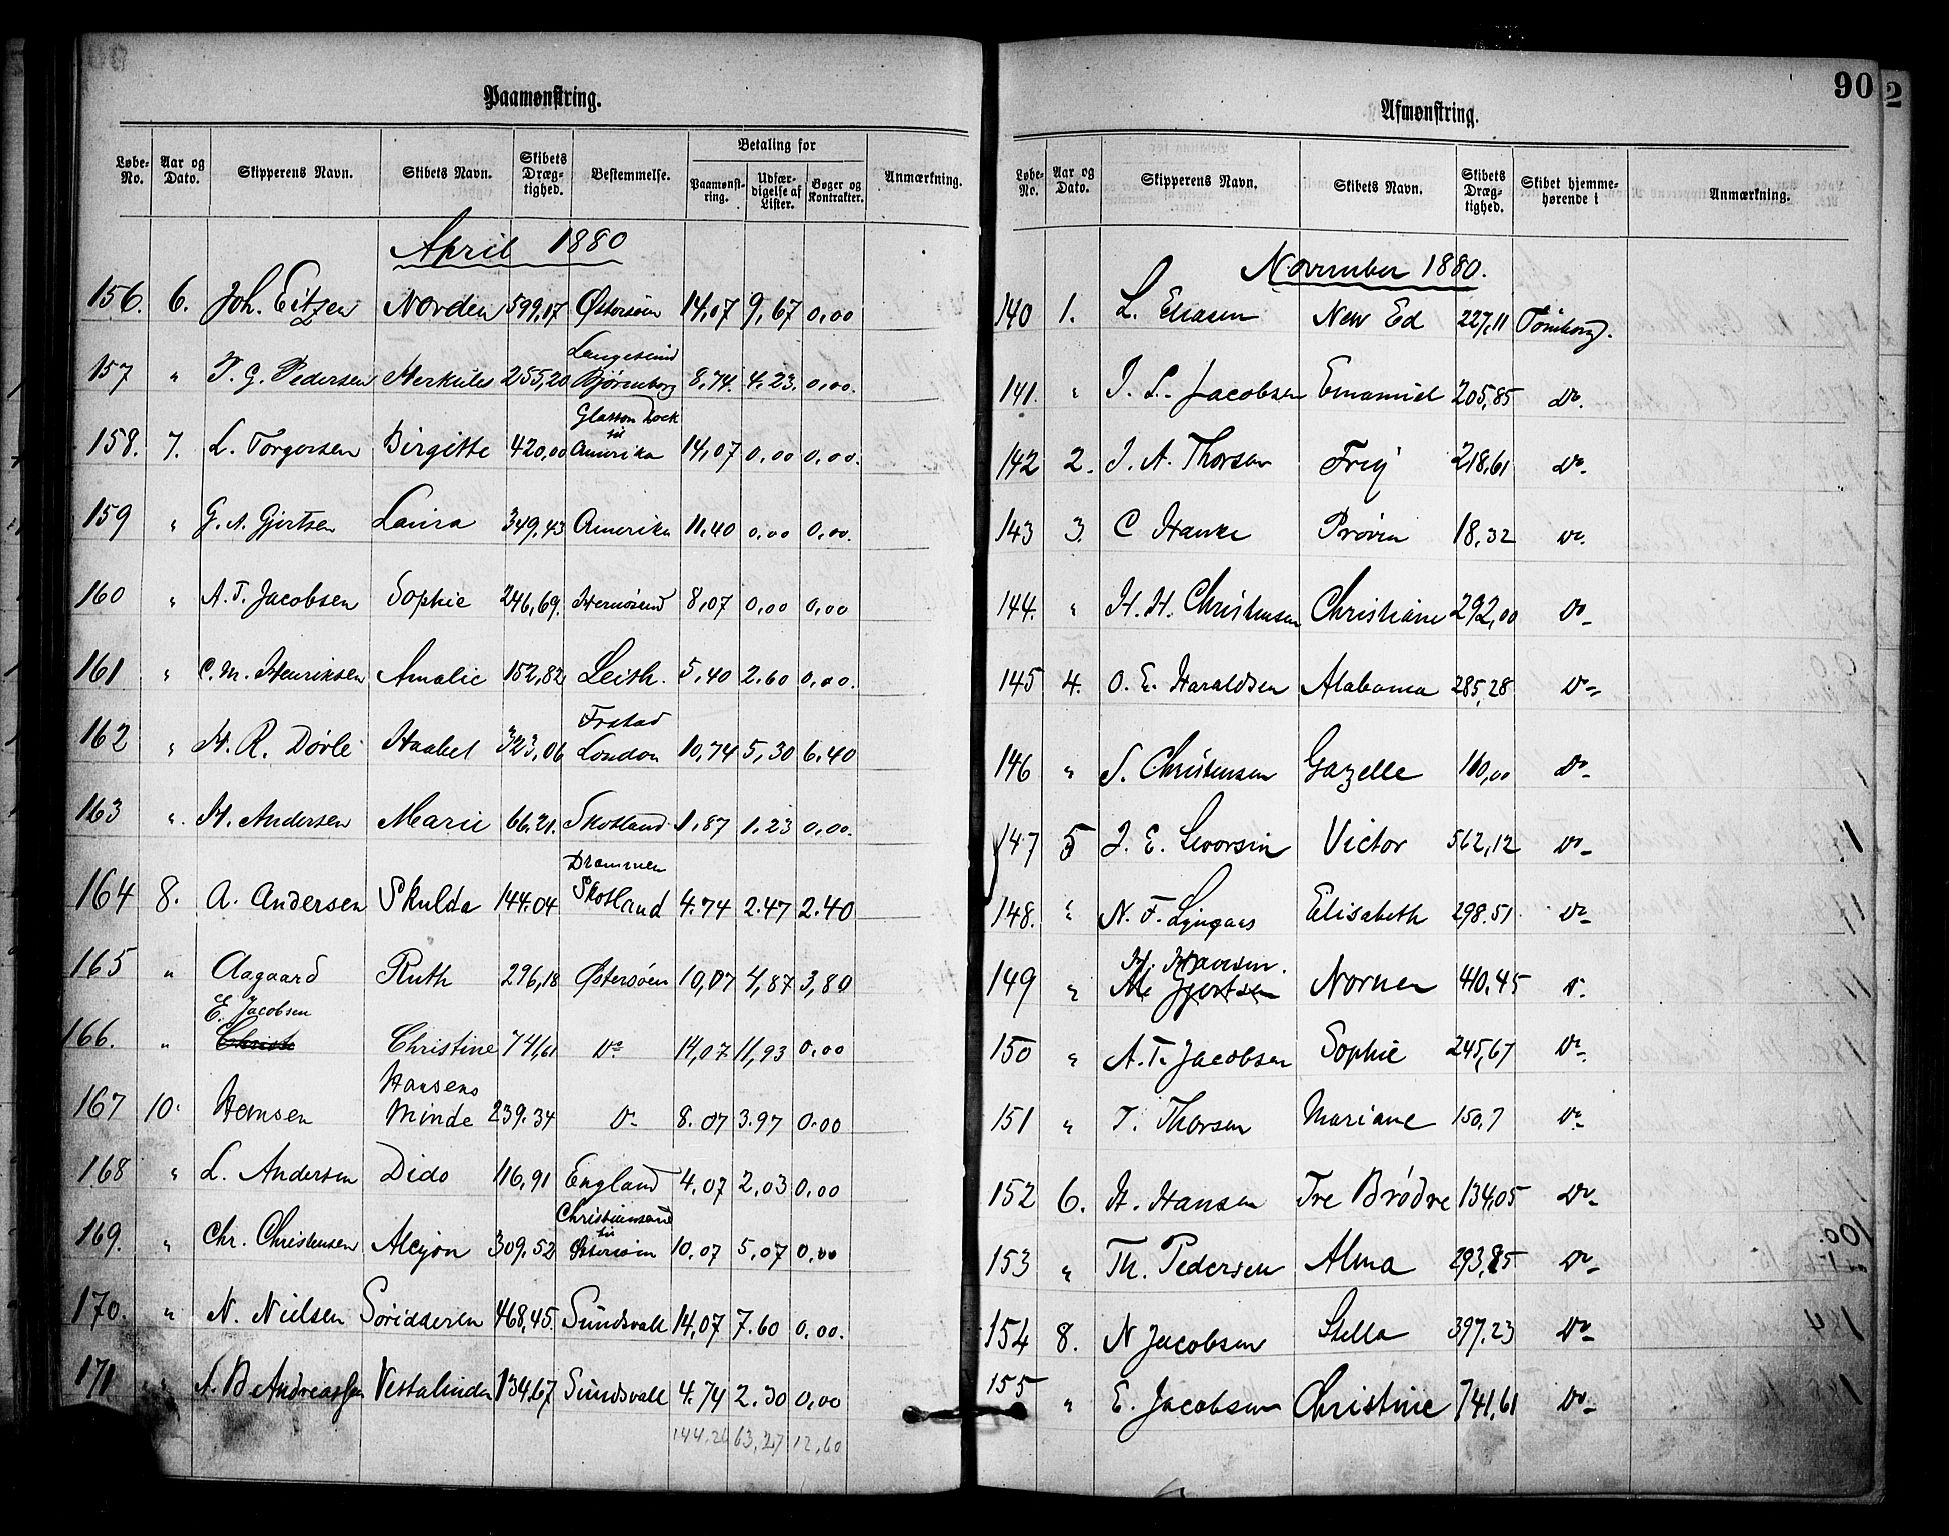 Paamønstring.
Løbe-No. Aar og Dato. Skipperens Navn. Skibets Navn. Skibets Dræg-tighed. Bestemmelse. Betaling for Paamønst-ring. Udfær-digelse af Lister. Bøger og Kontrakter. Anmærkning.
April 1880
156. 6. Joh. Eitzen Norden 599,17 Østersøen 14,07 9,67 0,00
Langesund
157 " P. G. Pedersen Herkules 255,20 Bjørneborg 8,74. 4,23. 0,00.
Glasson Dock
til
158. 7. L. Torgersen Birgitte 420,00 Amerika 14,07 0,00 0,00.
159 " G. A. Gjertsen Laura 349,43 Amerika 11,40 0,00 0,00.
160 " A. T. Jacobsen Sophie 246,69. Hernøsund 8,07 0,00 0,00
161 " C. M. Henriksen Amalie 152,82 Leith. 5,40 2,60 0,00.
Frstad
162 " H. R. Dørle Haabet 323,06 London 10,74 5,30 6.40
163 " H. Andersen Marie 66.21. Skotland. 1,87 1,23 0,00.
Drammen
164 8. A. Andersen Skulda 144.04 Skotland 4.74 2.47 2.40
165 " Aagaard Ruth 296,18 Østersøen 10,07 4,87 3,80
E. Jacobsen
166. " Christ Christine 741,61 Do 14,07 11,93 0.00
Hansens
167 10. Hansen Minde 239.34 Do 8.07 3.97 0.00
168 " L. Andersen Dido 116,91 England 4,07 2,03 0,00
Christianssand
til
169. " Chr. Christensen Alcyon 309,52 Østersøen 10,07 5,07 0,00
170. " N. Nielsen Søridderen 468,45. Sundsvall 14,07 7.60 0,00.
171 " A. B Andreassen Vestalinden 134,67 Sundsvall 4.74 2.30 0,00
144.26 63,27 12,60
90
2
Afmønstring.
Løbe-No. Aar og Dato. Skipperens Navn. Skibets Navn. Skibets Dræg-tighed. Skibet hjemme-hørende i Anmærkning.
November 1880.
140 1. L. Eliasen New Ed 227,11 Tønsberg.
141. " J. L. Jacobsen Emanuel 205,85 Do.
142 2. J. A. Thorsen Frey 218,61 Do
143 3. C Hanke Prøven 18,32 Do.
144. " H. H. Christensen Christiane 292,00 Do
145 4. O. E. Haraldsen Alabama 285,28 Do
146 " S. Christensen Gazelle 160,00 Do
147 5 J. E. Levorsen Victor 562,12 Do
148. " N. F. Lyngaas Elisabeth 298.51 Do
149 " M. Gjertsen Nornen 410.45 Do
150 " A. T. Jacobsen Sophie 245,67 Do
151 " T. Thorsen Mariane 150,7 Do
152 6. H. Hansen Tre Brødre 134,05 Do
153 " Th. Pedersen Alma 293,85 Do
154 8. N Jacobsen Stella 397.23 Do
155 " E. Jacobsen Christine 741,61 Do